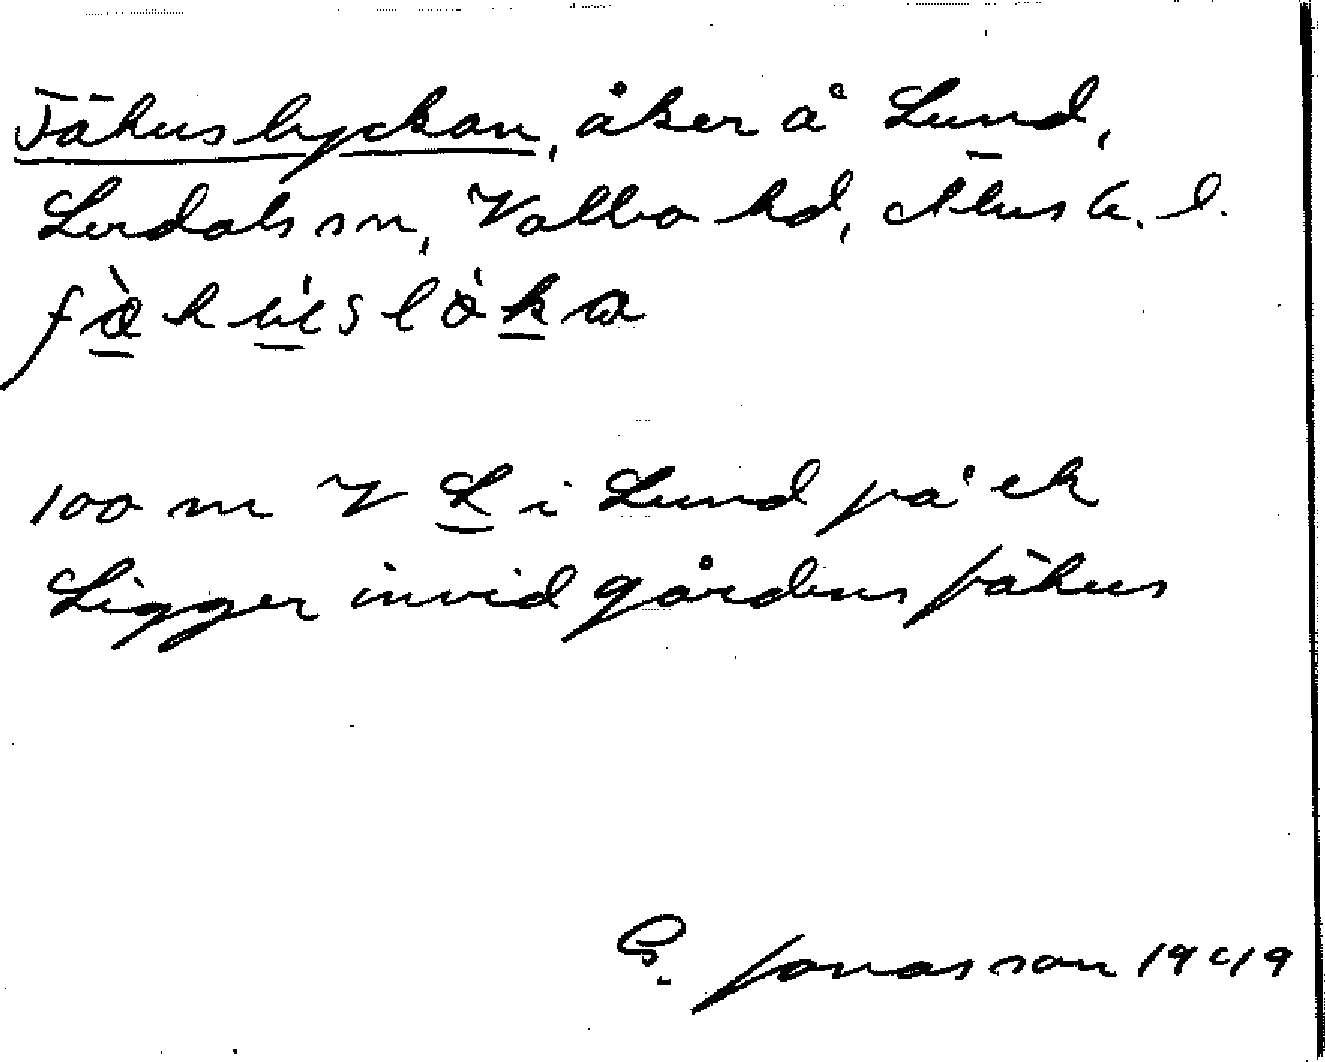 Fähuslyckan, åker å Lund,
Lerdals sn, Valbo hd, Älvsb. l.
fæhússlòka
100 m V L i Lund på ek
Ligger invid gårdens fähus
G. Jonasson 1949